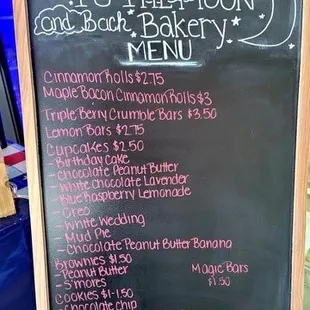 To The Moon
and Back Bakery
MENU
Cinnamon Rolls $2.75
Maple Bacon Cinnamon Rolls $3
Triple Berry Crumble Bars $3.50
Lemon Bars $2.75
Cupcakes $2.50
- Birthday Cake
- Chocolate Peanut Butter
- White Chocolate Lavender
- Blue Raspberry Lemonade
- Oreo
- White Wedding
- Mud Pie
- Chocolate Peanut Butter Banana
Brownies $1.50
- Peanut Butter
- S'mores
Cookies $1-1.50
- Chocolate Chip
Magic Bars
$1.50